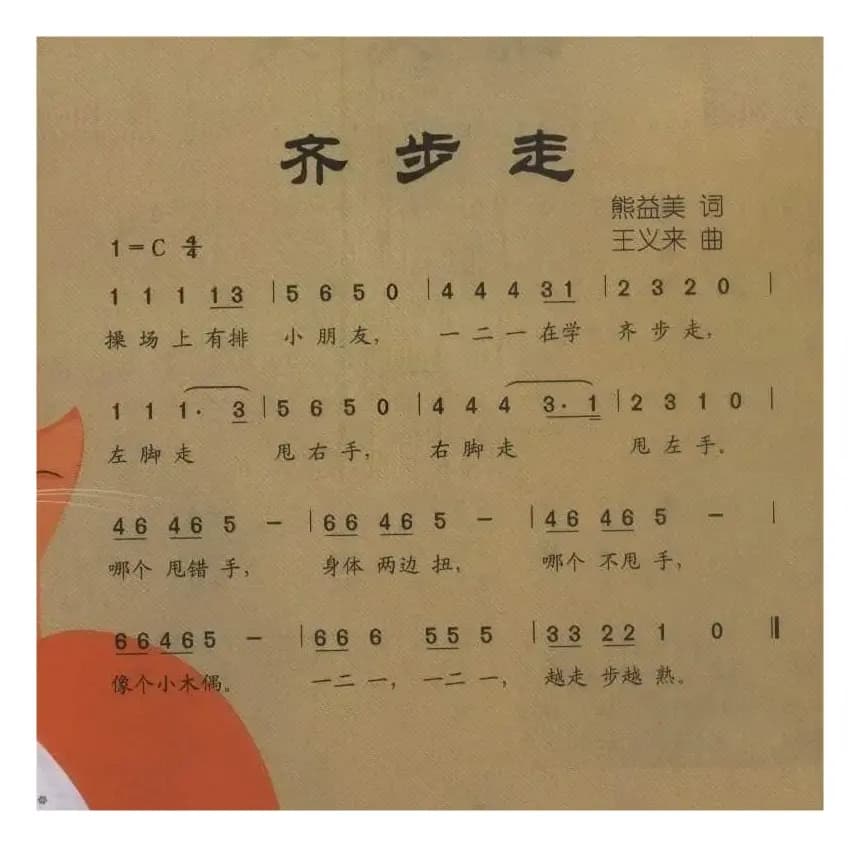 齐步走
熊益美 词
王义来 曲
1=C 4/4
1 1 1 13 | 5 6 5 0 | 4 4 4 31 | 2 3 2 0 |
操场上有排 小朋友, 一二一在学 齐步走,
1 1 1· 3 | 5 6 5 0 | 4 4 4 3·1 | 2 3 1 0 |
左脚走 甩右手, 右脚走 甩左手。
46 46 5 - | 66 46 5 - | 46 46 5 - |
哪个甩错手, 身体两边扭, 哪个不甩手,
66 46 5 - | 66 6 55 5 | 33 22 1 0 ‖
像个小木偶。 一二一, 一二一, 越走步越熟。